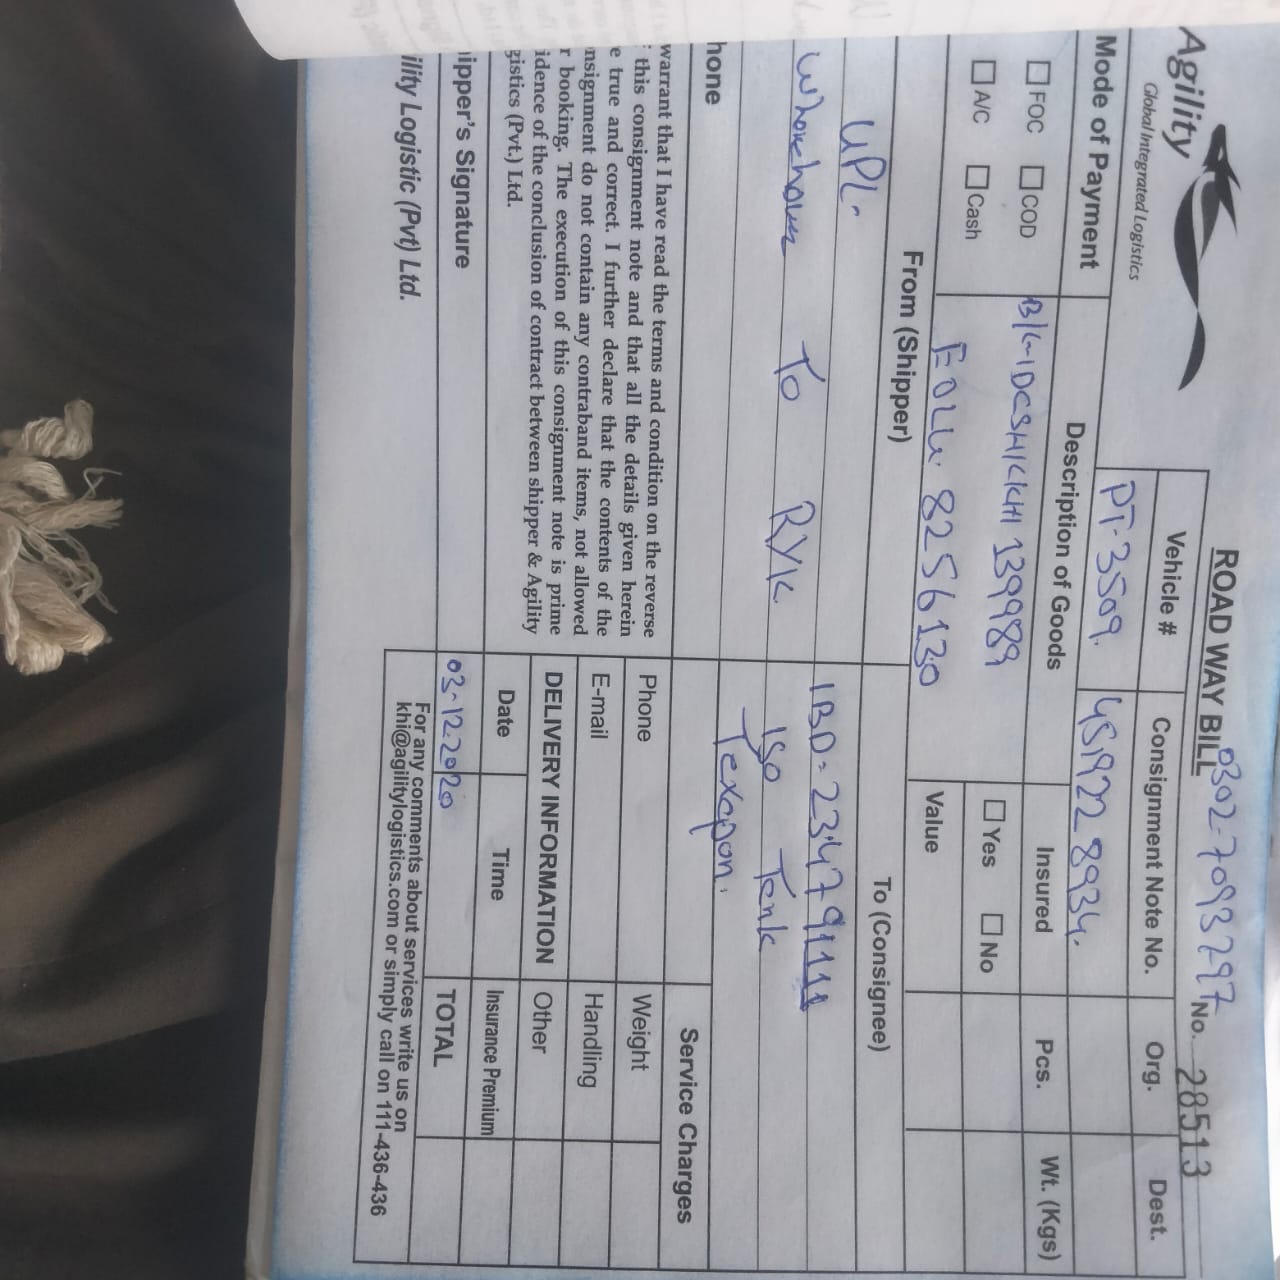 Agility
Global Integrated Logistics
ROAD WAY BILL
0302-7093297
No. 28513
Vehicle #
Consignment Note No.
Org.
Dest.
PT-3509.
4519228934.
Mode of Payment
Description of Goods
Insured
Pcs.
Wt. (Kgs)
FOC
COD
A/C
Cash
B/L-IDCSH/KKHI 139989
EOLU. 8256130
Yes
No
Value
From (Shipper)
To (Consignee)
UPL-
To RYK
IBD=234791111
ISO Tank
Texapon.
hone
warrant that I have read the terms and condition on the reverse
this consignment note and that all the details given herein
e true and correct. I further declare that the contents of the
nsignment do not contain any contraband items, not allowed
r booking. The execution of this consignment note is prime
idence of the conclusion of contract between shipper & Agility
gistics (Pvt.) Ltd.
Phone
E-mail
Service Charges
Weight
Handling
Other
Insurance Premium
TOTAL
DELIVERY INFORMATION
Date
Time
03-12-2020
ipper's Signature
ility Logistic (Pvt) Ltd.
For any comments about services write us on
khi@agilitylogistics.com or simply call on 111-436-436